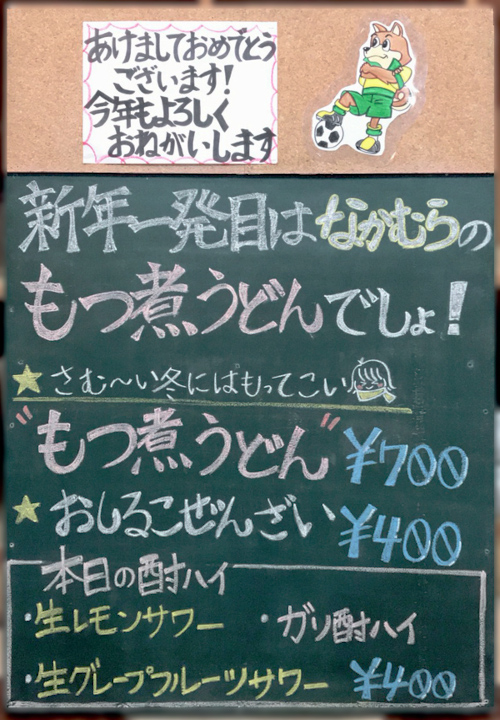 あけましておめでとう
ございます!
今年もよろしく
おねがいします
新年一発目はなかむらの
もつ煮うどんでしょ!
★さむ〜い冬にはもってこい
"もつ煮うどん" ¥700
★おしるこぜんざい ¥400
本日の酎ハイ
・生レモンサワー ・ガリ酎ハイ
・生グレープフルーツサワー ¥400